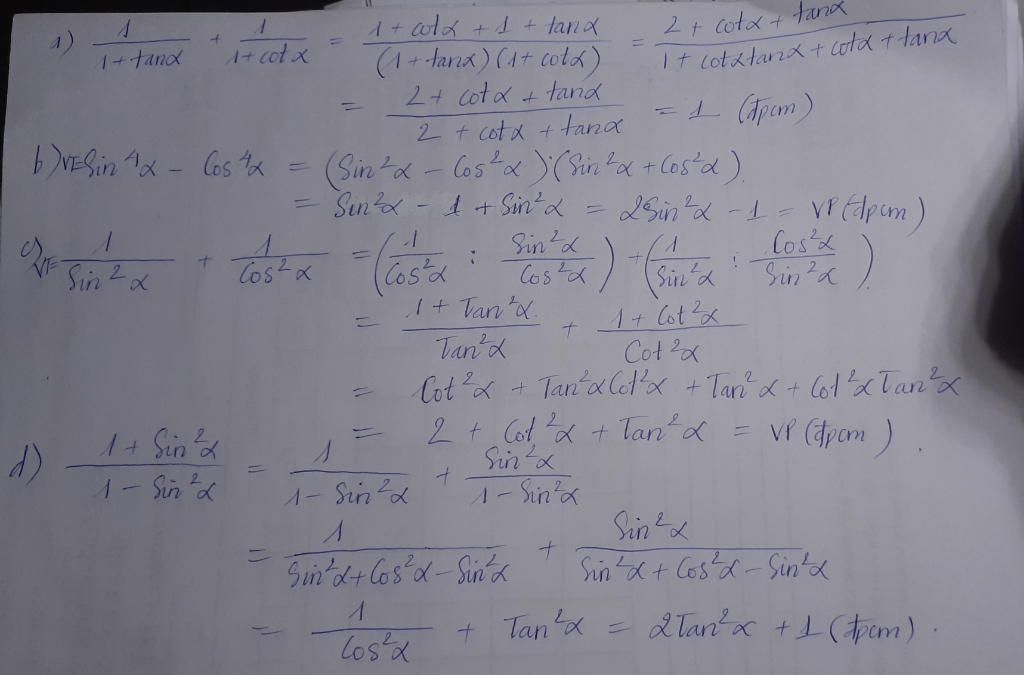 a) 1/(1+tanα) + 1/(1+cotα) = (1+cotα+1+tanα)/((1+tanα)(1+cotα)) = (2+cotα+tanα)/(1+cotαtanα+cotα+tanα)
= (2+cotα+tanα)/(2+cotα+tanα) = 1 (đpcm)
b) VT=Sin⁴α - Cos⁴α = (Sin²α - Cos²α)(Sin²α + Cos²α)
= Sin²α - 1 + Sin²α = 2Sin²α - 1 = VP (đpcm)
c) VT= 1/Sin²α + 1/Cos²α = (1/Cos²α : Sin²α/Cos²α) + (1/Sin²α : Cos²α/Sin²α)
= (1+Tan²α)/Tan²α + (1+Cot²α)/Cot²α
= Cot²α + Tan²αCot²α + Tan²α + Cot²αTan²α
= 2 + Cot²α + Tan²α = VP (đpcm)
d) (1+Sin²α)/(1-Sin²α) = 1/(1-Sin²α) + Sin²α/(1-Sin²α)
= 1/(Sin²α+Cos²α-Sin²α) + Sin²α/(Sin²α+Cos²α-Sin²α)
= 1/Cos²α + Tan²α = 2Tan²α + 1 (đpcm).